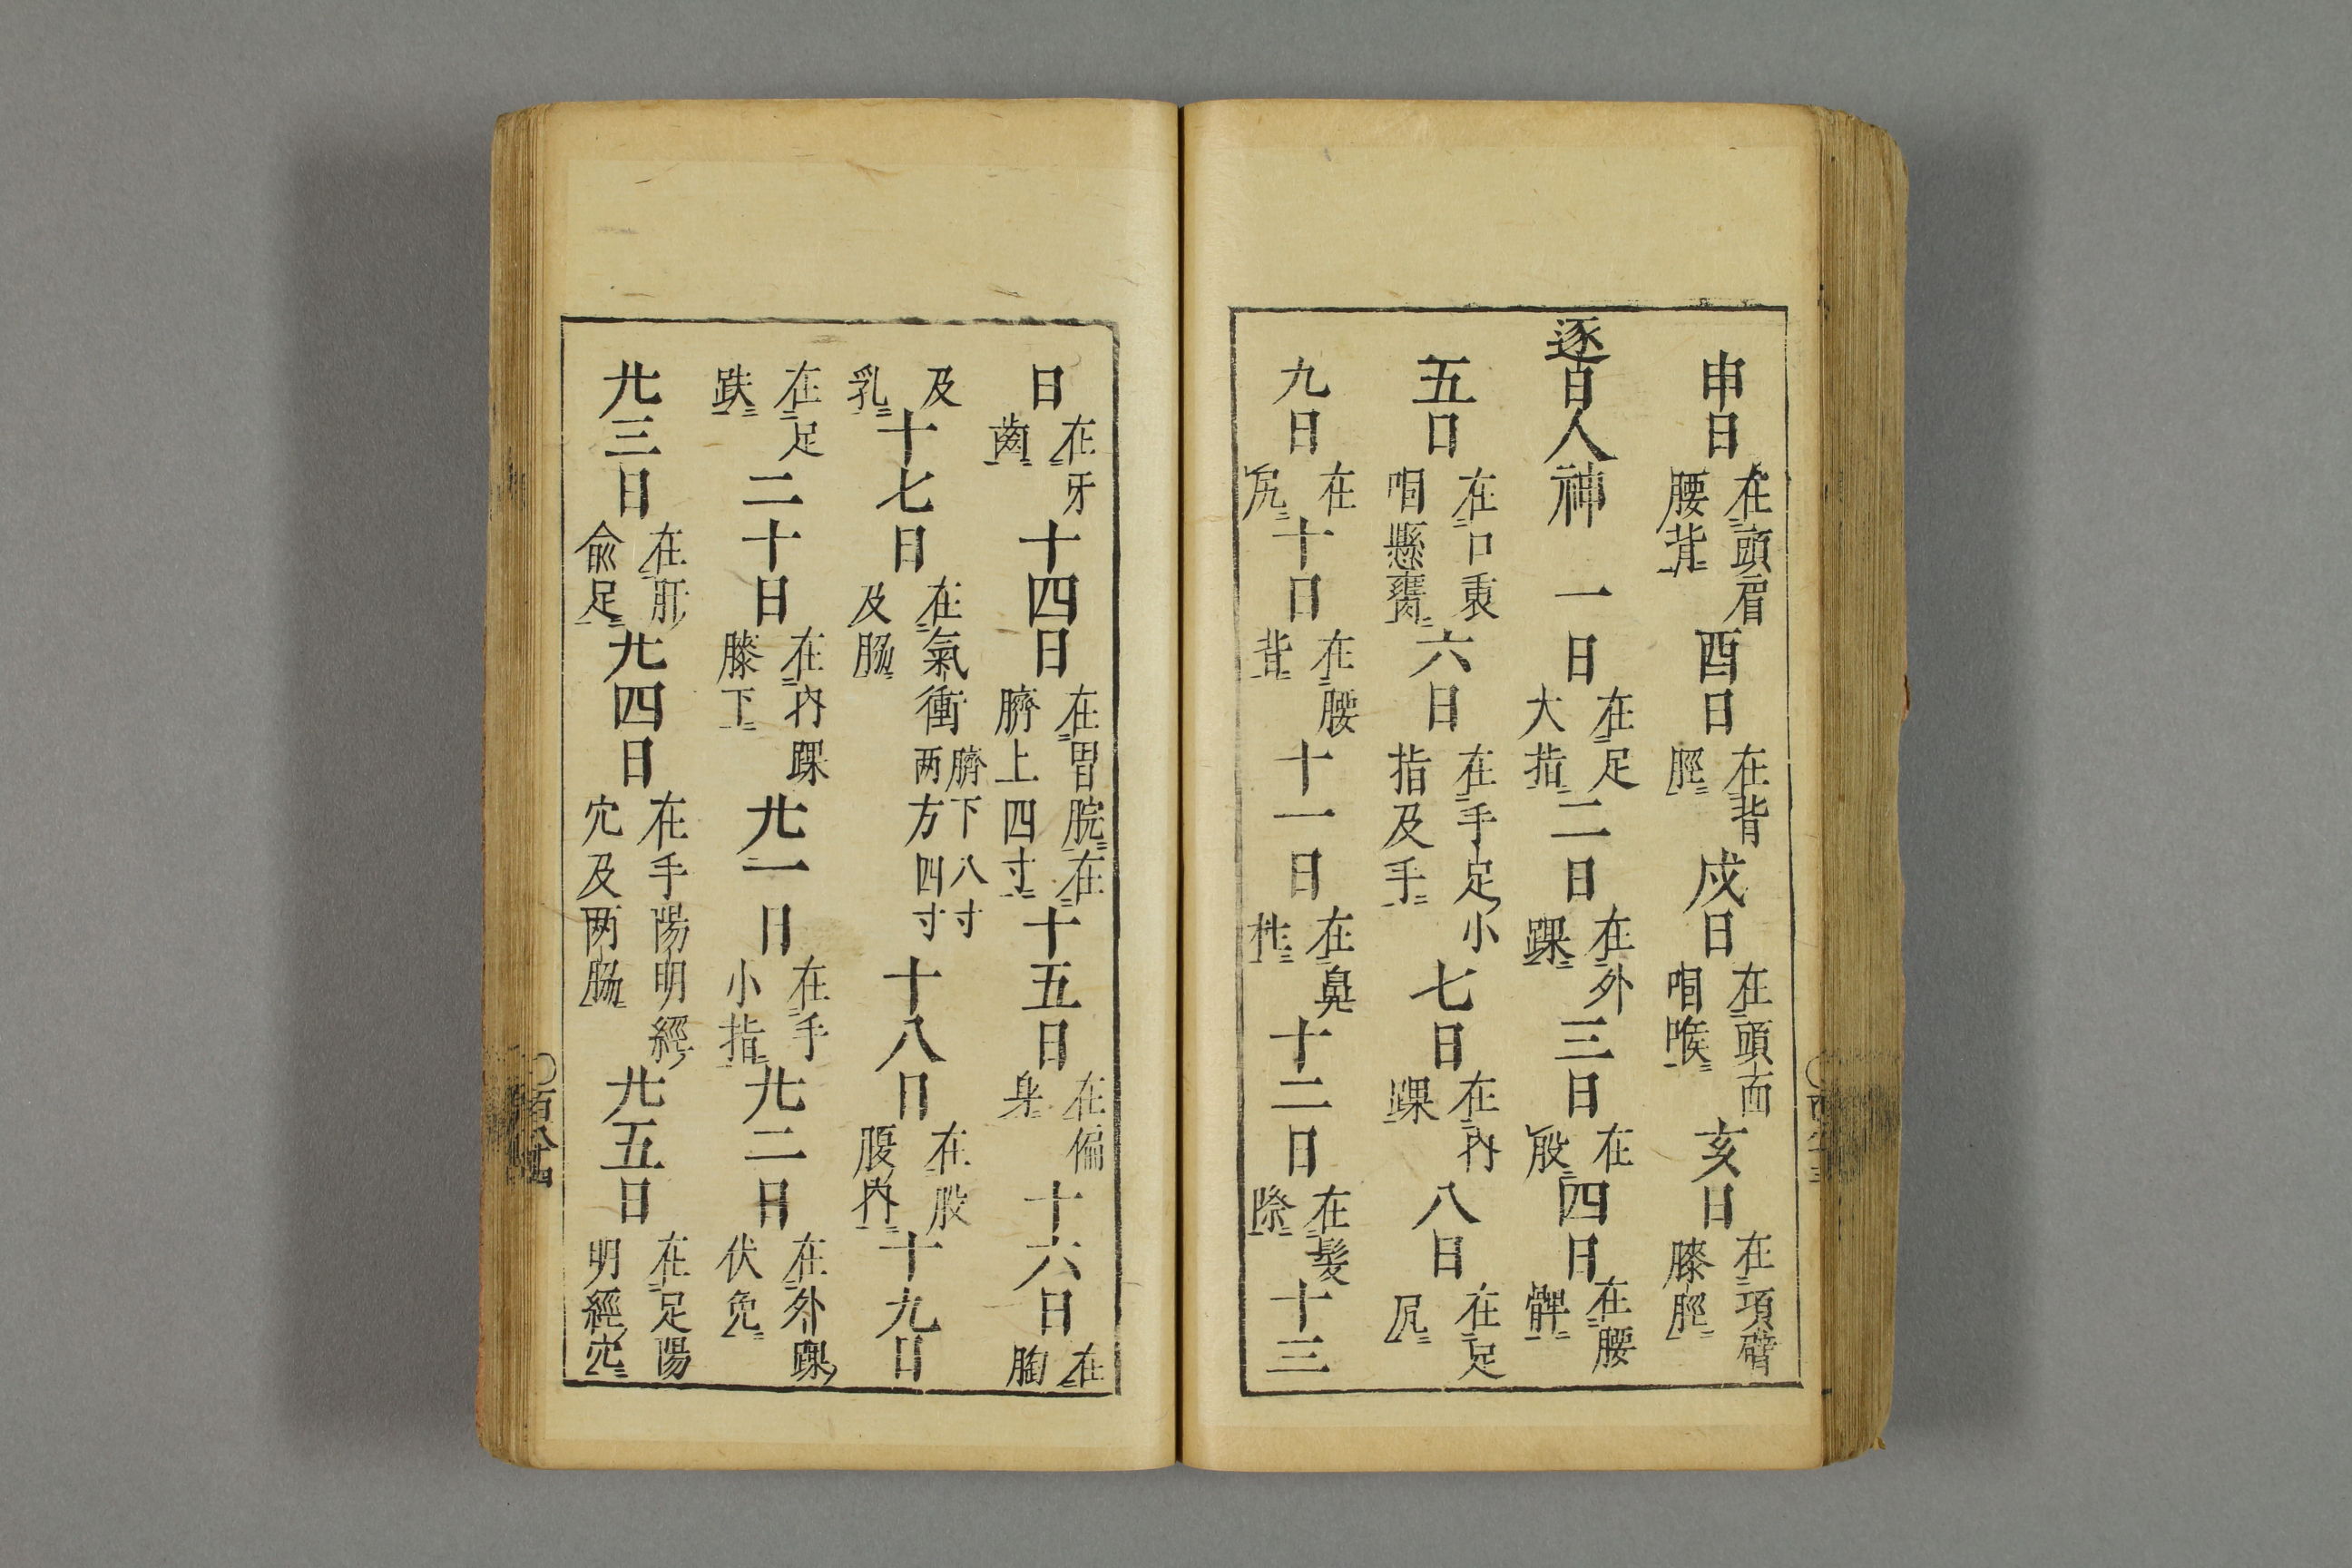 申日在頭眉腰背酉日在背脛戌日在頭面咽喉亥日在項臂膝脛
逐日人神一日在足大指二日在外踝三日在股四日在腰髀
五日在口裹咽懸癰六日在手足小指及手七日在內踝八日在足尻
九日在尻十日在腰背十一日在鼻柱十二日在髮際十三
日在牙齒十四日在胃脘在臍上四寸十五日在偏身十六日在胸
及乳十七日在氣衝臍下八寸两方四寸及脇十八日在股腹內十九日
在足趺二十日在內踝膝下廿一日在手小指廿二日在外踝伏兔
廿三日在肝俞足廿四日在手陽明經穴及两脇廿五日在足陽明經穴